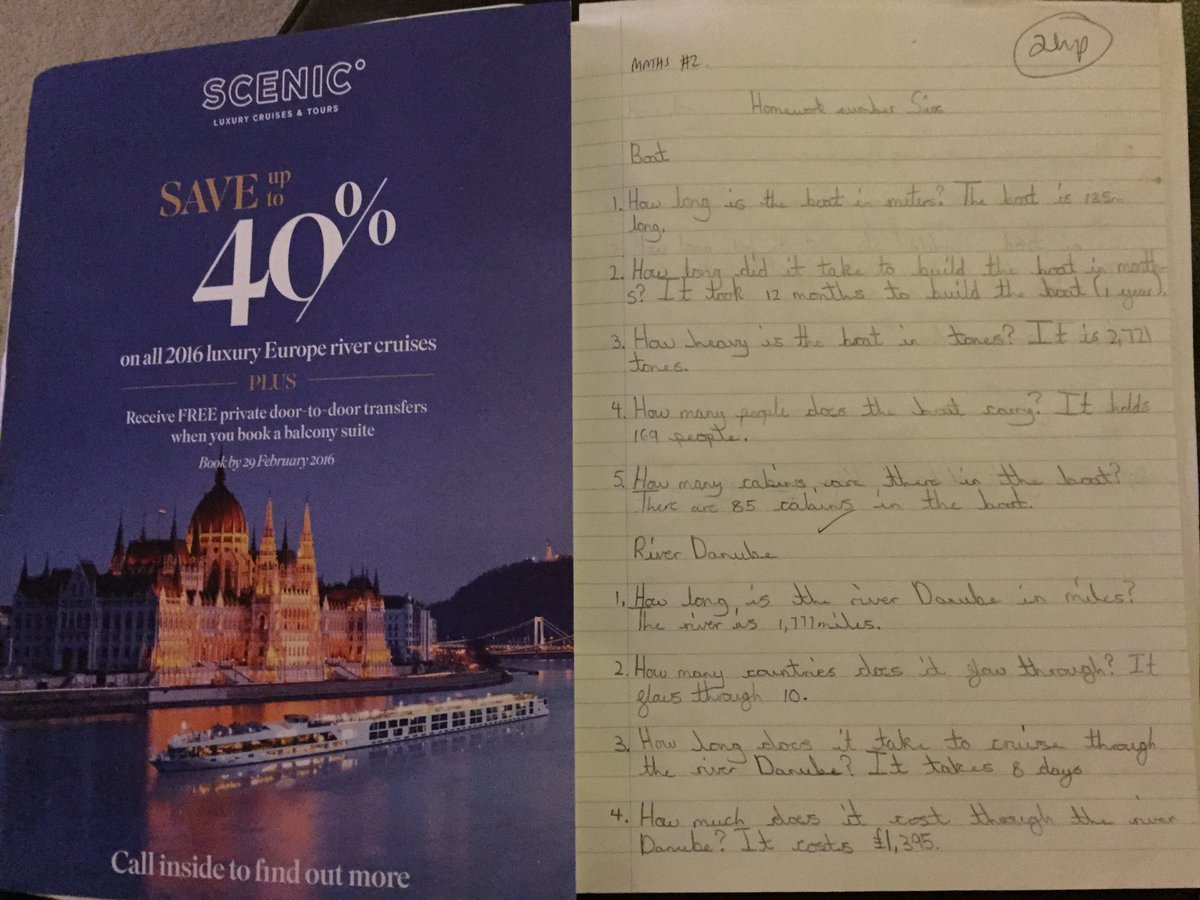 SCENIC°
LUXURY CRUISES & TOURS
SAVE up to
40%
on all 2016 luxury Europe river cruises
PLUS
Receive FREE private door-to-door transfers
when you book a balcony suite
Book by 29 February 2016
Call inside to find out more
2hp
MATHS #2.
Homework number Six
Boat
1. How long is the boat in meters? The boat is 135m
long.
2. How long did it take to build the boat in month-
s? It took 12 months to build the boat (1 year).
3. How heavy is the boat in tones? It is 2,721
tones.
4. How many people does the boat carry? It holds
169 people.
5. How many cabins are there in the boat?
There are 85 cabins in the boat.
River Danube
1. How long is the river Danube in miles?
The river is 1,777 miles.
2. How many countries does it flow through? It
flows through 10.
3. How long does it take to cruise through
the river Danube? It takes 8 days
4. How much does it cost through the river
Danube? It costs £1,395.